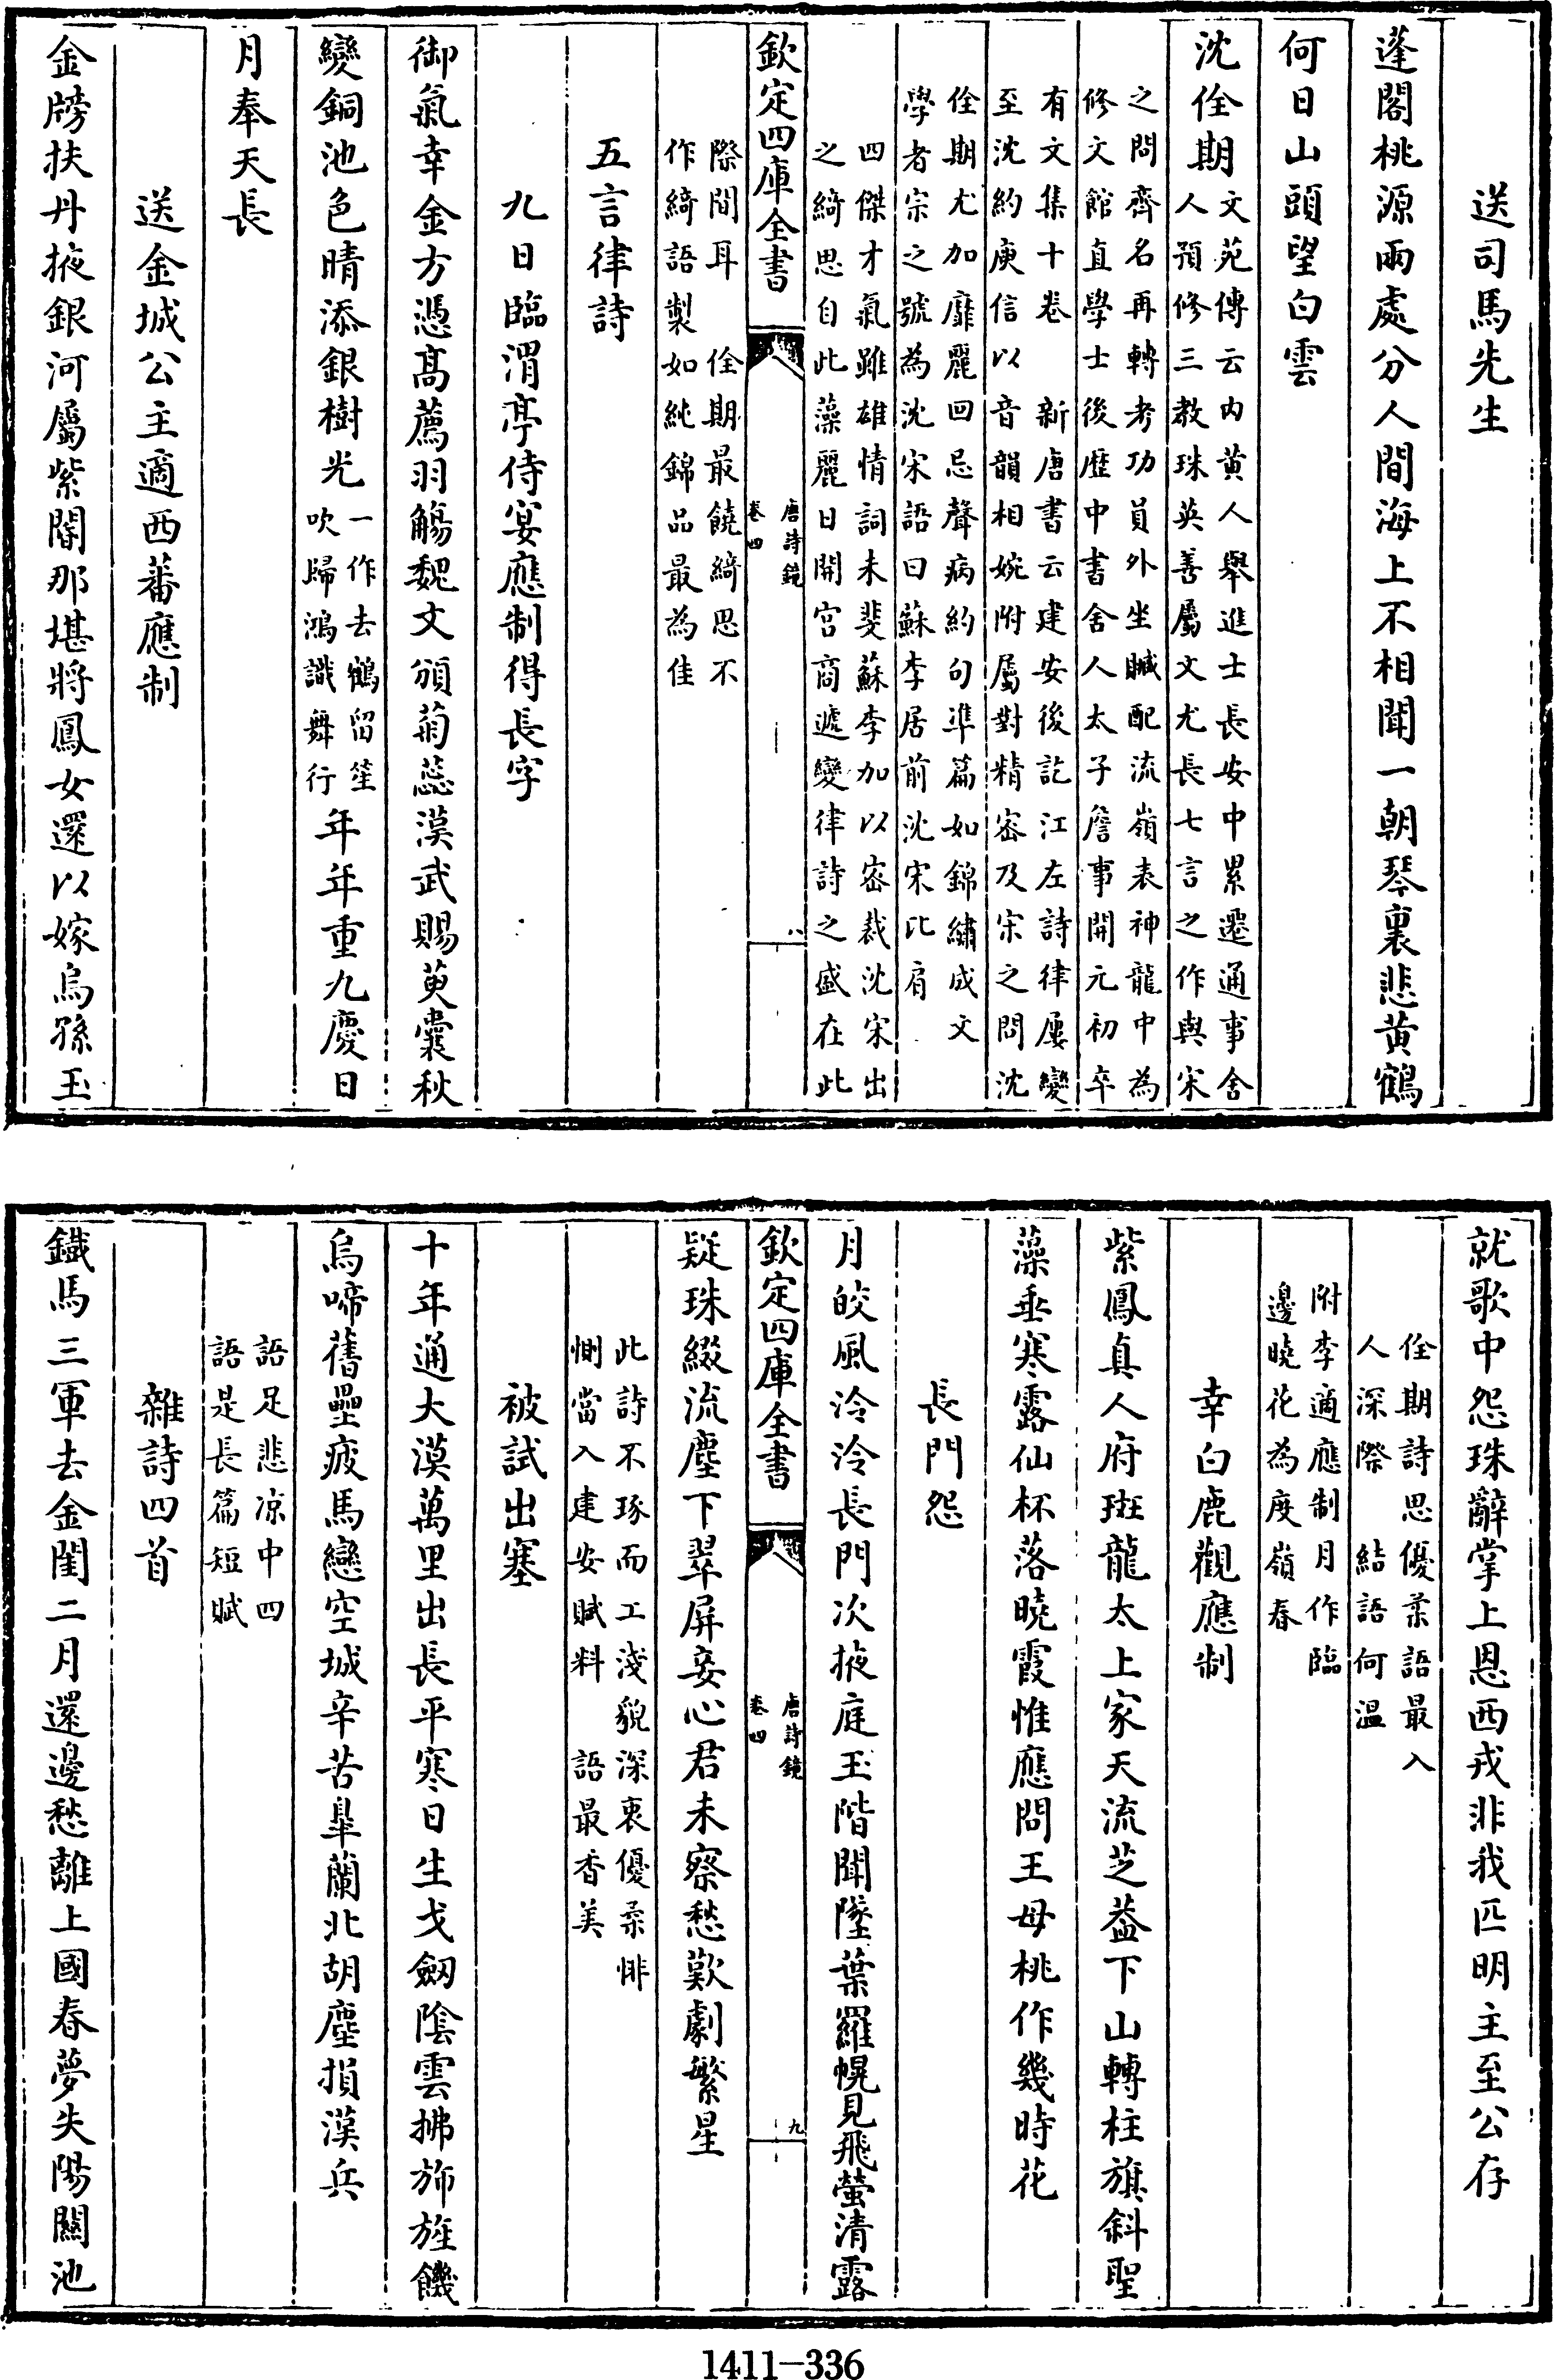 送司馬先生
蓬閣桃源兩處分人間海上不相聞一朝琴裏悲黄鶴
何日山頭望白雲
沈佺期
文苑傳云内黄人舉進士長安中累遷通事舍
人預修三教珠英善屬文尤長七言之作與宋
之問齊名再轉考功員外坐贓配流嶺表神龍中為
修文館直學士後歴中書舍人太子詹事開元初卒
有文集十卷 新唐書云建安後訖江左詩律屢變
至沈約庾信以音韻相婉附屬對精宻及宋之問沈
佺期尤加靡麗回忌聲病約句凖篇如錦繡成文
學者宗之號為沈宋語曰蘇李居前沈宋比肩
四傑才氣雖雄情詞未斐蘇李加以宻裁沈宋出
之綺思自此藻麗日開宫商遞變律詩之盛在此
欽定四庫全書
唐詩鏡
卷四
八
際間耳 佺期最饒綺思不
作綺語製如純錦品最為佳
五言律詩
九日臨渭亭侍宴應制得長字
御氣幸金方憑髙薦羽觴魏文頒菊蕊漢武賜萸囊秋
變銅池色晴添銀樹光
一作去鶴留笙
吹歸鴻識舞行
年年重九慶日
月奉天長
送金城公主適西蕃應制
金牓扶丹掖銀河屬紫閽那堪將鳳女還以嫁烏孫玉
就歌中怨珠辭掌上恩西戎非我匹明主至公存
佺期詩思優柔語最入
人深際 結語何温
附李適應制月作臨
邊曉花為度嶺春
幸白鹿觀應制
紫鳳真人府斑龍太上家天流芝葢下山轉柱旗斜聖
藻垂寒露仙杯落曉霞惟應問王母桃作幾時花
長門怨
月皎風泠泠長門次掖庭玉階聞墜葉羅幌見飛螢清露
欽定四庫全書
唐詩鏡
卷四
九
疑珠綴流塵下翠屏妾心君未察愁歎劇繁星
此詩不琢而工淺貌深衷優柔悱
惻當入建安賦料 語最香美
被試出塞
十年通大漠萬里出長平寒日生戈劒陰雲拂斾旌饑
烏啼舊壘疲馬戀空城辛苦臯蘭北胡塵損漢兵
語足悲凉中四
語是長篇短賦
雜詩四首
鐵馬三軍去金閨二月還邊愁離上國春夢失陽關池
1411-336